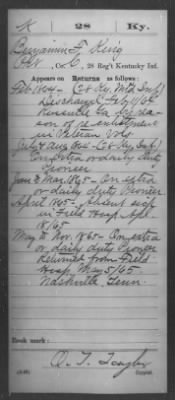 K 28 Ky.
Benjamin F. King
Pvt, Co. C, 28 Reg't Kentucky Inf.
Appears on Returns as follows:
Feb 1864 - (28 Ky. Mtd Inf)
Discharged Feb 11/64
Ga by rea-
son of re-enlistment
in Veteran Vols
July & Aug 1864 (28 Ky. Inf)
On extra or daily duty
Pioneer
Jan to Mar 1865 - On extra
or daily duty Pioneer
April 1865 - Absent sick
in Field Hosp Apl
18/65
May to Nov. 1865 - On extra
or daily duty Pioneer
Returned from Field
Hosp, May 5/65
Nashville Tenn.
Book mark:
Copyist.